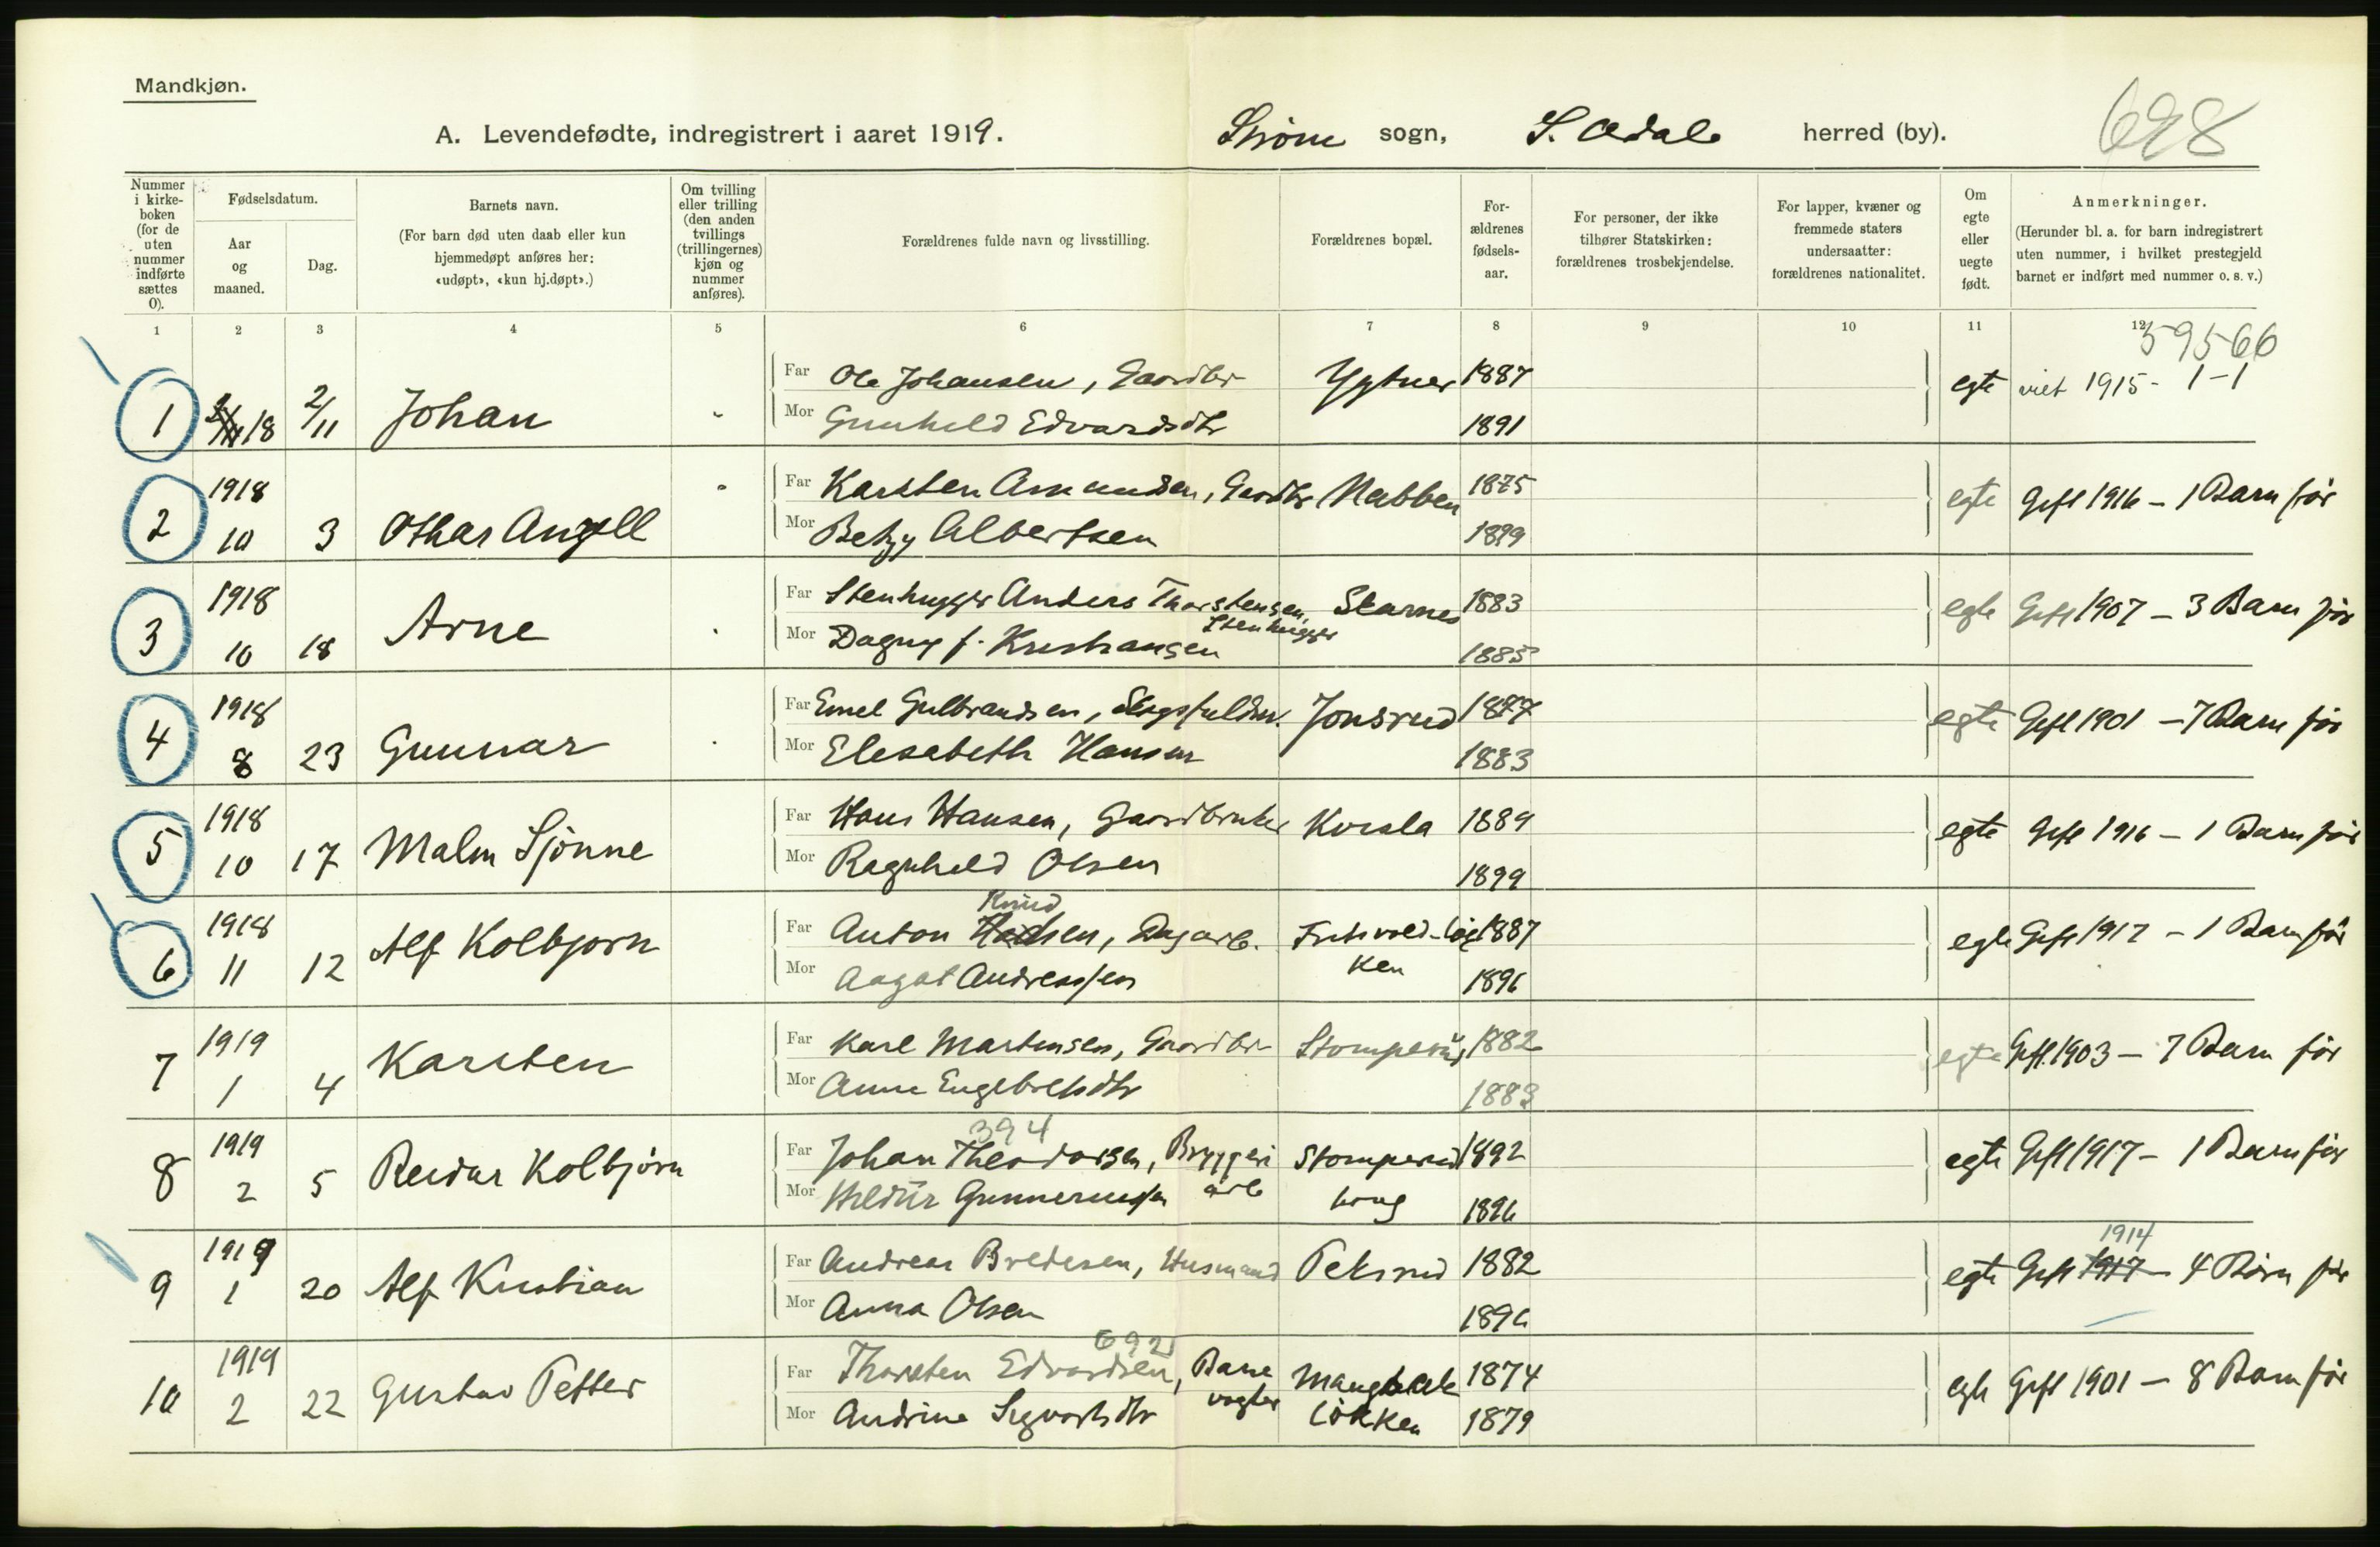 Mandkjøn.
A. Levendefødte, indregistrert i aaret 1919. Strøm sogn, S. Odalen herred (by). 698
Nummer i kirkeboken (for de uten nummer indførte sættes 0).
Fødselsdatum.
Aar og maaned.
Dag.
Barnets navn.
(For barn død uten daab eller kun hjemmedøpt anføres her: «udøpt», «kun hj.døpt».)
Om tvilling eller trilling (den anden tvillings (trillingernes) kjøn og nummer anføres).
Forældrenes fulde navn og livsstilling.
Forældrenes bopæl.
Forældrenes fødselsaar.
For personer, der ikke tilhører Statskirken: forældrenes trosbekjendelse.
For lapper, kvæner og fremmede staters undersaatter: forældrenes nationalitet.
Om egte eller uegte født.
Anmerkninger.
(Herunder bl. a. for barn indregistrert uten nummer, i hvilket prestegjeld barnet er indført med nummer o. s. v.)
1 2 3 4 5 6 7 8 9 10 11 12
59566
1 18 2/11 Johan
Far Ole Johansen, Gaardbr 1887 egte viet 1915 - 1-1
Mor Gunhild Edvardsdtr 1891
2 1918 10 3 Othar Angell
Far Karsten Amundsen, Gardbr Nabben 1875 egte Gift 1916 - 1 Barn før
Mor Betzy Albertsen 1899
3 1918 10 18 Arne
Far Stenhugger Anders Thorstensen, Stenhugger Skarnes 1883 egte Gift 1907 - 3 Barn før
Mor Dagny f. Kristiansen 1885
4 1918 8 23 Gunnar
Far Emil Gulbrandsen, Jonsrud 1877 egte Gift 1901 - 7 Barn før
Mor Elisabeth Hansen 1883
5 1918 10 17 Malm Sjönne
Far Hans Hansen, Gaardbruker Kvisla 1889 egte Gift 1916 - 1 Barn før
Mor Ragnhild Olsen 1899
6 1918 11 12 Alf Kolbjørn
Far Anton Knud Dagarb. 1887 egte Gift 1917 - 1 Barn før
Mor Aagot Andreassen 1896
7 1919 1 4 Karsten
Far Karl Martinsen, Gaardbr Stomperud 1882 egte Gift 1903 - 7 Barn før
Mor Anne Engebretsdtr 1883
394
8 1919 2 5 Reidar Kolbjørn
Far Johan Theodorsen, Bryggeri arb Stomperud 1892 egte Gift 1917 - 1 Barn før
Mor Hildur Gunnerussen 1896
9 1919 1 20 Alf Kristian
Far Andreas Bredesen, Husmand Peksrud 1882 egte Gift 1917 1914 - 4 Børn før
Mor Anna Olsen 1896
692
10 1919 2 22 Gustav Petter
Far Thorsten Edvardsen, Banevogter løkken 1874 egte Gift 1901 - 8 Barn før
Mor Andrine Sigvartsdtr 1879